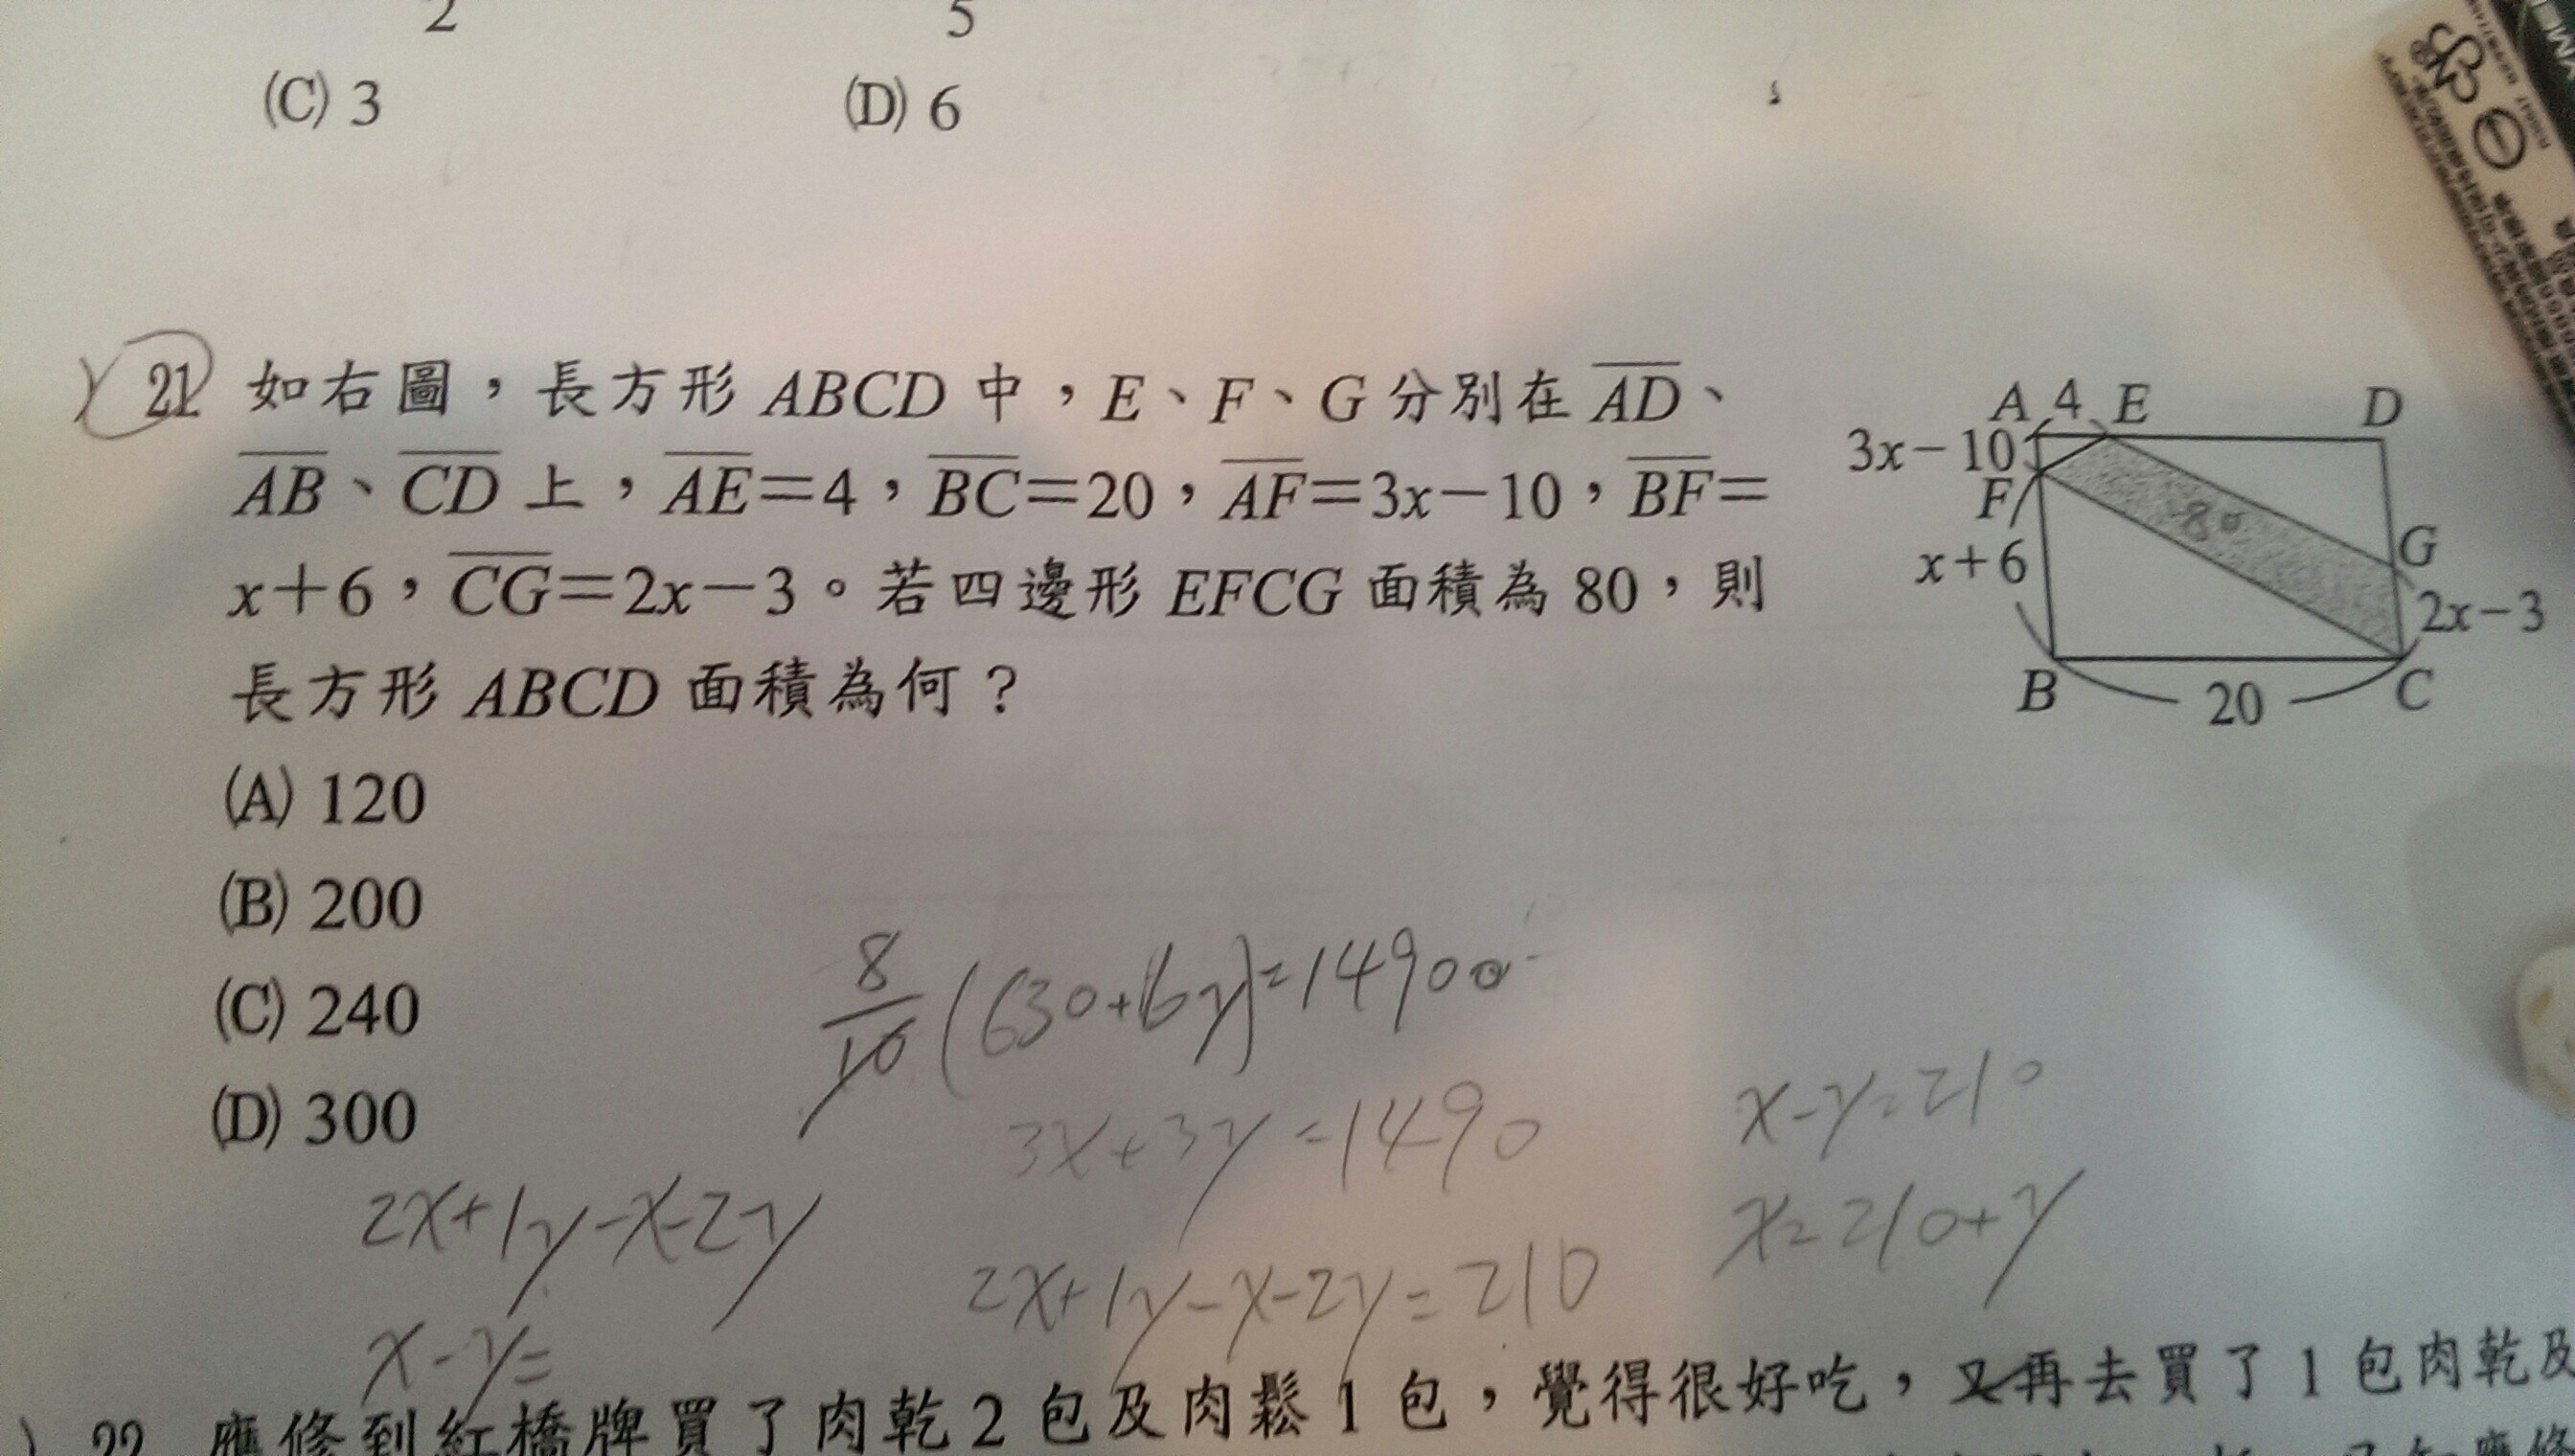 2 5
(C) 3 (D) 6
21. 如右圖，長方形 ABCD 中，E、F、G 分別在 AD、
AB、CD 上，AE＝4，BC＝20，AF＝3x－10，BF＝
x＋6，CG＝2x－3。若四邊形 EFCG 面積為 80，則
長方形 ABCD 面積為何？
A 4 E D
3x－10
F
80
G
x＋6
2x－3
B 20 C
(A) 120
(B) 200
(C) 240
(D) 300
8/10 (630+16y)=14900
3x+3y=1490
x-y=210
2x+1y-x-2y
x=210+y
2x+1y-x-2y=210
x-y=
22. 應修到紅橋牌買了肉乾 2 包及肉鬆 1 包，覺得很好吃，又再去買了 1 包肉乾及